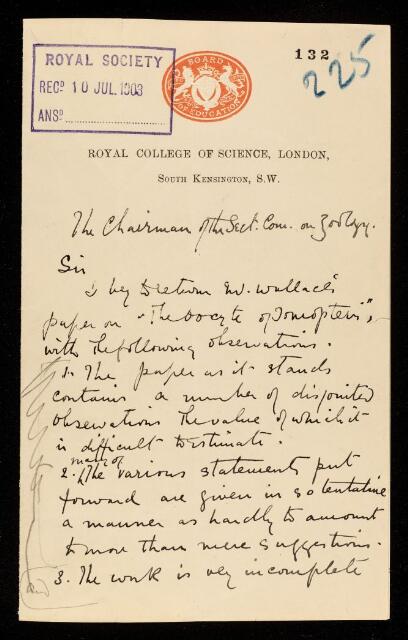 ROYAL SOCIETY
RECD 10 JUL. 1903
ANSD
BOARD OF EDUCATION
132
225
ROYAL COLLEGE OF SCIENCE, LONDON,
SOUTH KENSINGTON, S.W.
The Chairman of the Sect. Com. on Zoology.
Sir
I beg to return Mr. Wallace's
paper on "The Oocyte of Tomopteris",
with the following observations.
1. The paper as it stands
contains a number of disjointed
observations the value of which it
is difficult to estimate.
many of
2. The various statements put
forward are given in so tentative
a manner as hardly to amount
to more than mere suggestions.
3. The work is very incomplete